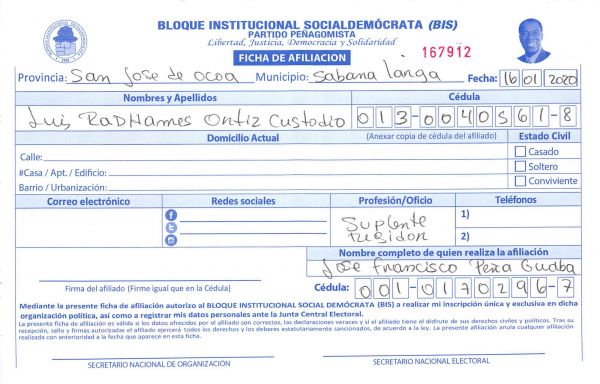 BLOQUE INSTITUCIONAL SOCIALDEMÓCRATA (BIS)
PARTIDO PEÑAGOMISTA
Libertad, Justicia, Democracia y Solidaridad
FICHA DE AFILIACION
167912
Provincia: San Jose de Ocoa Municipio: Sabana Larga Fecha: 16 01 2020
Nombres y Apellidos Cédula
Luis RadHames Ortiz Custodio 013-0040561-8
Domicilio Actual (Anexar copia de cédula del afiliado) Estado Civil
Calle: Casado
#Casa / Apt. / Edificio: Soltero
Barrio / Urbanización: Conviviente
Correo electrónico Redes sociales Profesión/Oficio Teléfonos
Suplente 1)
Regidor 2)
Nombre completo de quien realiza la afiliación
Jose Francisco Peña Guaba
Firma del afiliado (Firme igual que en la Cédula) Cédula: 001-0170296-7
Mediante la presente ficha de afiliación autorizo al BLOQUE INSTITUCIONAL SOCIAL DEMÓCRATA (BIS) a realizar mi inscripción única y exclusiva en dicha
organización política, así como a registrar mis datos personales ante la Junta Central Electoral.
La presente ficha de afiliación es válida si los datos ofrecidos por el afiliado son correctos, las declaraciones veraces y si el afiliado tiene el disfrute de sus derechos civiles y políticos. Tras su
recepción, sello y firmas autorizadas el afiliado ejercerá todos los derechos y los deberes estatutariamente sancionados, de acuerdo a la ley. La presente afiliación anula cualquier afiliación
realizada con anterioridad a la fecha que aparece en esta ficha.
SECRETARIO NACIONAL DE ORGANIZACIÓN SECRETARIO NACIONAL ELECTORAL